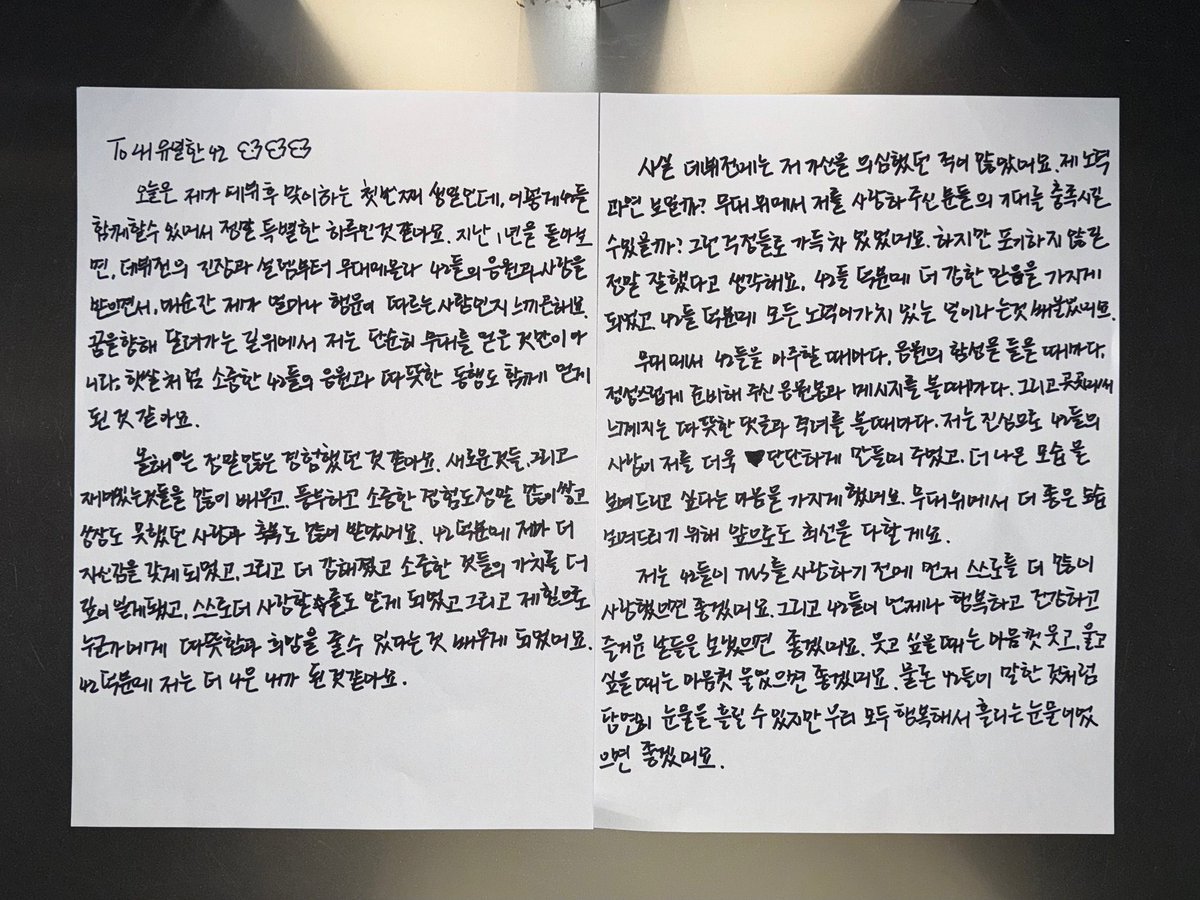 To 내 유일한 42 ღ3 ღ3 ღ3
오늘은 제가 데뷔 후 맞이하는 첫번째 생일인데, 이렇게 42들
함께할 수 있어서 정말 특별한 하루인 것 같아요. 지난 1년을 돌아보
면, 데뷔전의 긴장과 설렘부터 무대에 올라 42들의 응원과 사랑을
받으면서, 매순간 제가 얼마나 행운이 따르는 사람인지 느끼곤해요.
꿈을향해 달려가는 길위에서 저는 단순히 무대를 얻은 것만이 아
니라, 햇살처럼 소중한 42들의 응원과 따뜻한 동행도 함께 얻게
된 것 같아요.
올해는 정말 많은 경험했던 것 같아요. 새로운것들, 그리고
재미있는것들을 많이 배우고. 풍부하고 소중한 경험도 정말 많이 쌓고
상상도 못했던 사랑과 축복도 많이 받았어요. 42 덕분에 저마 더
자신감을 갖게 되었고, 그리고 더 강해졌고 소중한 것들의 가치를 더
깊이 알게됐고, 스스로 더 사랑할 줄도 알게 되었고 그리고 제 힘으로
누군가에게 따뜻함과 희망을 줄 수 있다는 것 배우게 되었어요.
42 덕분에 저는 더 나은 내가 된 것 같아요.
사실 데뷔전에는 저 자신을 의심했던 적이 많았어요. 제 노력
과연 보일까? 무대 위에서 저를 사랑해 주신 분들의 기대를 충족시킬
수있을까? 그런 걱정들로 가득 차 있었어요. 하지만 포기하지 않길
정말 잘했다고 생각해요. 42들 덕분에 더 강한 믿음을 가지게
되었고, 42들 덕분에 모든 노력이 가치 있는 일이라는 것 배웠어요.
무대에서 42들을 마주할 때마다, 응원의 함성을 들을 때마다,
정성스럽게 준비해 주신 응원봉과 메시지를 볼 때마다. 그리고 곳곳에서
느껴지는 따뜻한 댓글과 격려를 볼 때마다. 저는 진심으로 42들의
사랑이 저를 더욱 ♥단단하게 만들어 주었고. 더 나은 모습을
보여드리고 싶다는 마음을 가지게 했어요. 무대위에서 더 좋은 모습
보여드리기 위해 앞으로도 최선을 다할게요.
저는 42들이 TWS를 사랑하기 전에 먼저 스스로를 더 많이
사랑했으면 좋겠어요. 그리고 42들이 언제나 행복하고 건강하고
즐거운 날들을 보냈으면 좋겠어요. 웃고 싶을 때는 마음껏 웃고, 울고
싶을 때는 마음껏 울었으면 좋겠어요. 물론 42들이 말한 것처럼
당연히 눈물을 흘릴 수 있지만 우리 모두 행복해서 흘리는 눈물이었
으면 좋겠어요.